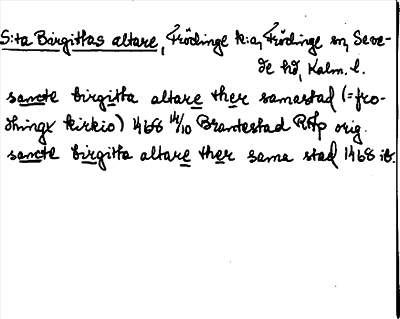 S:ta Birgittas altare, Frödinge k:a, Frödinge sn, Seve-
de hd, Kalm. l.
sancte birgitta altare ther samastad (=fro-
thingx kirkio) 1468 14/10 Brantestad RAp orig.
sancte birgitta altare ther sama stad 1468 ib.